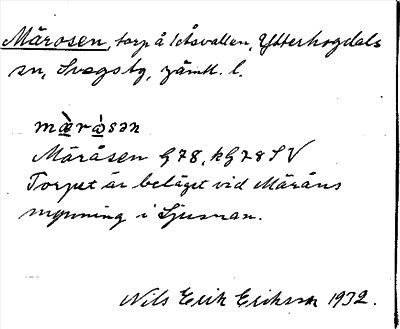 Märosen, torp å Idåsvallen, Ytterhogdals
sn, Svegs tg, Jämtl. l.
mæ̀rå̀sən
Märåsen G 78, kG 78 S V
Torpet är beläget vid Märåns
mynning i Ljusnan.
Nils Erik Eriksson 1932.